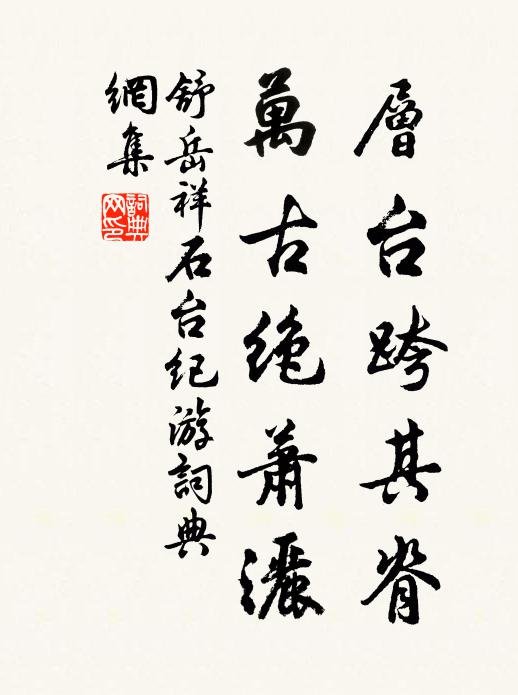 層台跨其脊
萬古絶蕭灑
舒岳祥石台纪游詞典
網集
詞典
网印